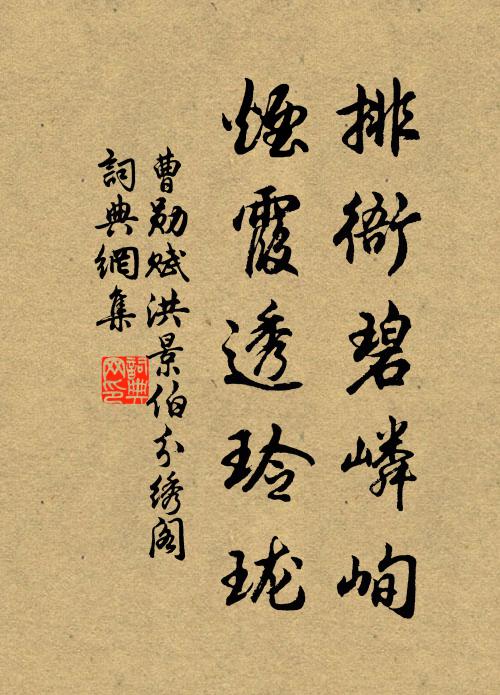 排衙碧嶙峋
煙霞透玲珑
曹勋赋洪景伯分绣阁
詞典網集
詞典网印